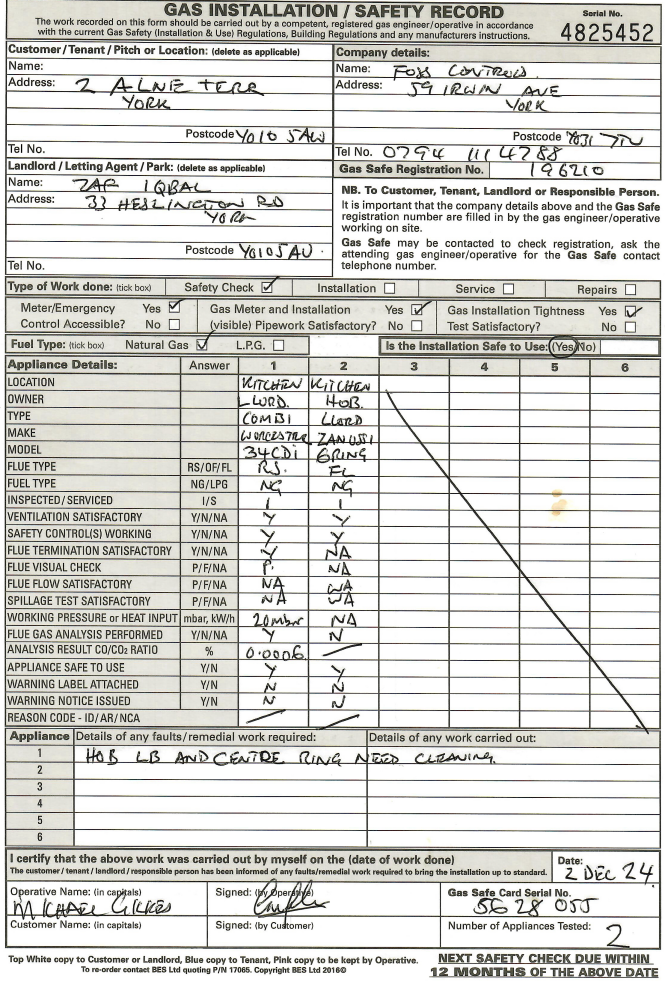 GAS INSTALLATION / SAFETY RECORD
The work recorded on this form should be carried out by a competent, registered gas engineer/operative in accordance
with the current Gas Safety (Installation & Use) Regulations, Building Regulations and any manufacturers instructions.
Serial No.
4825452
Customer / Tenant / Pitch or Location: (delete as applicable)
Name:
Address: 2 ALNE TERR
YORK
Postcode YO10 5AW
Tel No.
Company details:
Name: FOSS CONTROLS.
Address: 59 IRWIN AVE
YORK
Postcode YO31 7TU
Tel No. 0794 111 4788
Gas Safe Registration No. 196210
Landlord / Letting Agent / Park: (delete as applicable)
Name: ZAF IQBAL
Address: 33 HESLINGTON RD
YORK
Postcode YO10 5AU
Tel No.
NB. To Customer, Tenant, Landlord or Responsible Person.
It is important that the company details above and the Gas Safe
registration number are filled in by the gas engineer/operative
working on site.
Gas Safe may be contacted to check registration, ask the
attending gas engineer/operative for the Gas Safe contact
telephone number.
Type of Work done: (tick box) Safety Check ✓ Installation Service Repairs
Meter/Emergency Yes ✓ Gas Meter and Installation Yes ✓ Gas Installation Tightness Yes ✓
Control Accessible? No (visible) Pipework Satisfactory? No Test Satisfactory? No
Fuel Type: (tick box) Natural Gas ✓ L.P.G. Is the Installation Safe to Use: (Yes/No)
Appliance Details: Answer 1 2 3 4 5 6
LOCATION KITCHEN KITCHEN
OWNER LLORD. HOB.
TYPE COMBI LLORD
MAKE WORCESTER ZANUSSI
MODEL 34CDi 6RING
FLUE TYPE RS/OF/FL RS. FL
FUEL TYPE NG/LPG NG NG
INSPECTED/SERVICED I/S I I
VENTILATION SATISFACTORY Y/N/NA Y Y
SAFETY CONTROL(S) WORKING Y/N/NA Y Y
FLUE TERMINATION SATISFACTORY Y/N/NA Y NA
FLUE VISUAL CHECK P/F/NA P. NA
FLUE FLOW SATISFACTORY P/F/NA NA NA
SPILLAGE TEST SATISFACTORY P/F/NA NA NA
WORKING PRESSURE or HEAT INPUT mbar, kW/h 20mbar NA
FLUE GAS ANALYSIS PERFORMED Y/N/NA Y N
ANALYSIS RESULT CO/CO2 RATIO % 0.0006
APPLIANCE SAFE TO USE Y/N Y Y
WARNING LABEL ATTACHED Y/N N N
WARNING NOTICE ISSUED Y/N N N
REASON CODE - ID/AR/NCA
Appliance Details of any faults/remedial work required: Details of any work carried out:
1 HOB LB AND CENTRE RING NEED CLEANING.
2
3
4
5
6
I certify that the above work was carried out by myself on the (date of work done)
The customer / tenant / landlord / responsible person has been informed of any faults/remedial work required to bring the installation up to standard.
Date:
2 DEC 24.
Operative Name: (in capitals)
MICHAEL GILKES
Signed: (by Operative)
Gas Safe Card Serial No.
5628055
Customer Name: (in capitals)
Signed: (by Customer)
Number of Appliances Tested: 2
Top White copy to Customer or Landlord, Blue copy to Tenant, Pink copy to be kept by Operative.
To re-order contact BES Ltd quoting P/N 17065. Copyright BES Ltd 2016©
NEXT SAFETY CHECK DUE WITHIN
12 MONTHS OF THE ABOVE DATE